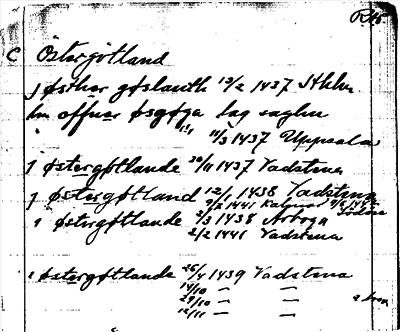 C Östergötland
j østher gøslanth 13/2 1437 Sthlm
hm offuer øsgøga lag saghu
11/3 1437 Uppsala
j østergøtlande 20/11 1437 Vadstena
j østergøtland 12/1 1438 Vadstena
9/2 1441 Kalmar
i østergøtlande 2/3 1438 Arboga
2/2 1441 Vadstena
i østergøtlande 26/4 1439 Vadstena
14/10 — —
29/10 — —
12/11 — —